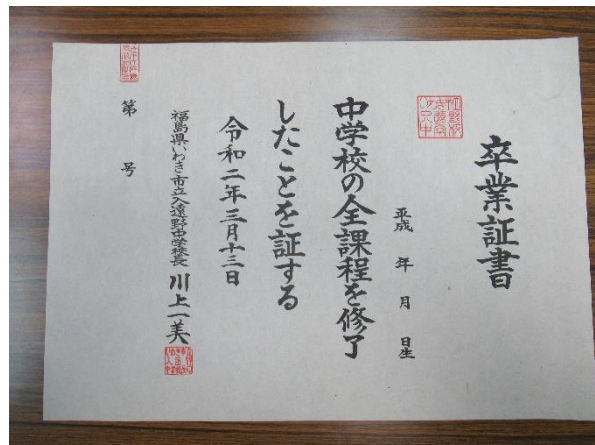 卒業証書
平成 年 月 日生
中学校の全課程を修了
したことを証する
令和二年三月十三日
福島県いわき市立入遠野中学校長 川上一美
第 号